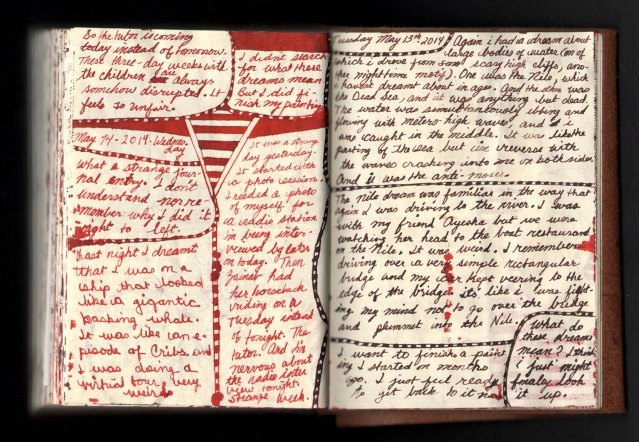 So the tutor is coming
today instead of tomorrow.
These three-day weeks with
the children are always
somehow disrupted. It
feels so unfair.
I didn't search
for what these
dreams mean
But I did fi-
nish my painting
May 14 - 2014. Wednes-
day
What a strange jour-
nal entry. I don't
understand nor re-
member why I did it
right to left.
Last night I dreamt
that I was on a
ship that looked
like a gigantic
packing whale.
It was like an e-
pisode of Cribs and
I was doing a
virtual tour. Very
weird
It was a strange
day yesterday.
It started with
a photo session.
I needed a photo
of myself for
a radio station
im being inter-
viewed by later
on today. Then
Zainab had
her horseback
riding on a
Tuesday instead
of tonight. The
tutor. And I'm
nervous about
the radio inter
view tonight.
Strange week.
Tuesday May 13th 2014 Again i had a dream about
large bodies of water (on of
which i drove from some scary high cliffs, ano-
ther nighttime motif). One was the Nile, which
i havent dreamt about in ages. And the other was
the Dead Sea and it was anything but dead.
The water was simultaneously ebbing and
flowing with meters high waves, and so i
was caught in the middle. It was like the
parting of the sea but in reverse with
the waves crashing into me on both sides.
And i was the anti-moses.
The Nile dream was familiar in the way that
again I was driving to the river. I was
with my friend Aycha but we were
watching her head to the boat restaurant
on the Nile. It was weird. I remember
driving over a very simple rectangular
bridge and my car kept veering to the
edge of the bridge. It's like i was fight-
ing my mind not to go over the bridge
and plummet into the Nile.
I want to finish a paint
ing I started on months
ago. I just feel ready
to get back to it now
What do
these dreams
mean? I think
I just might
finaly look
it up.